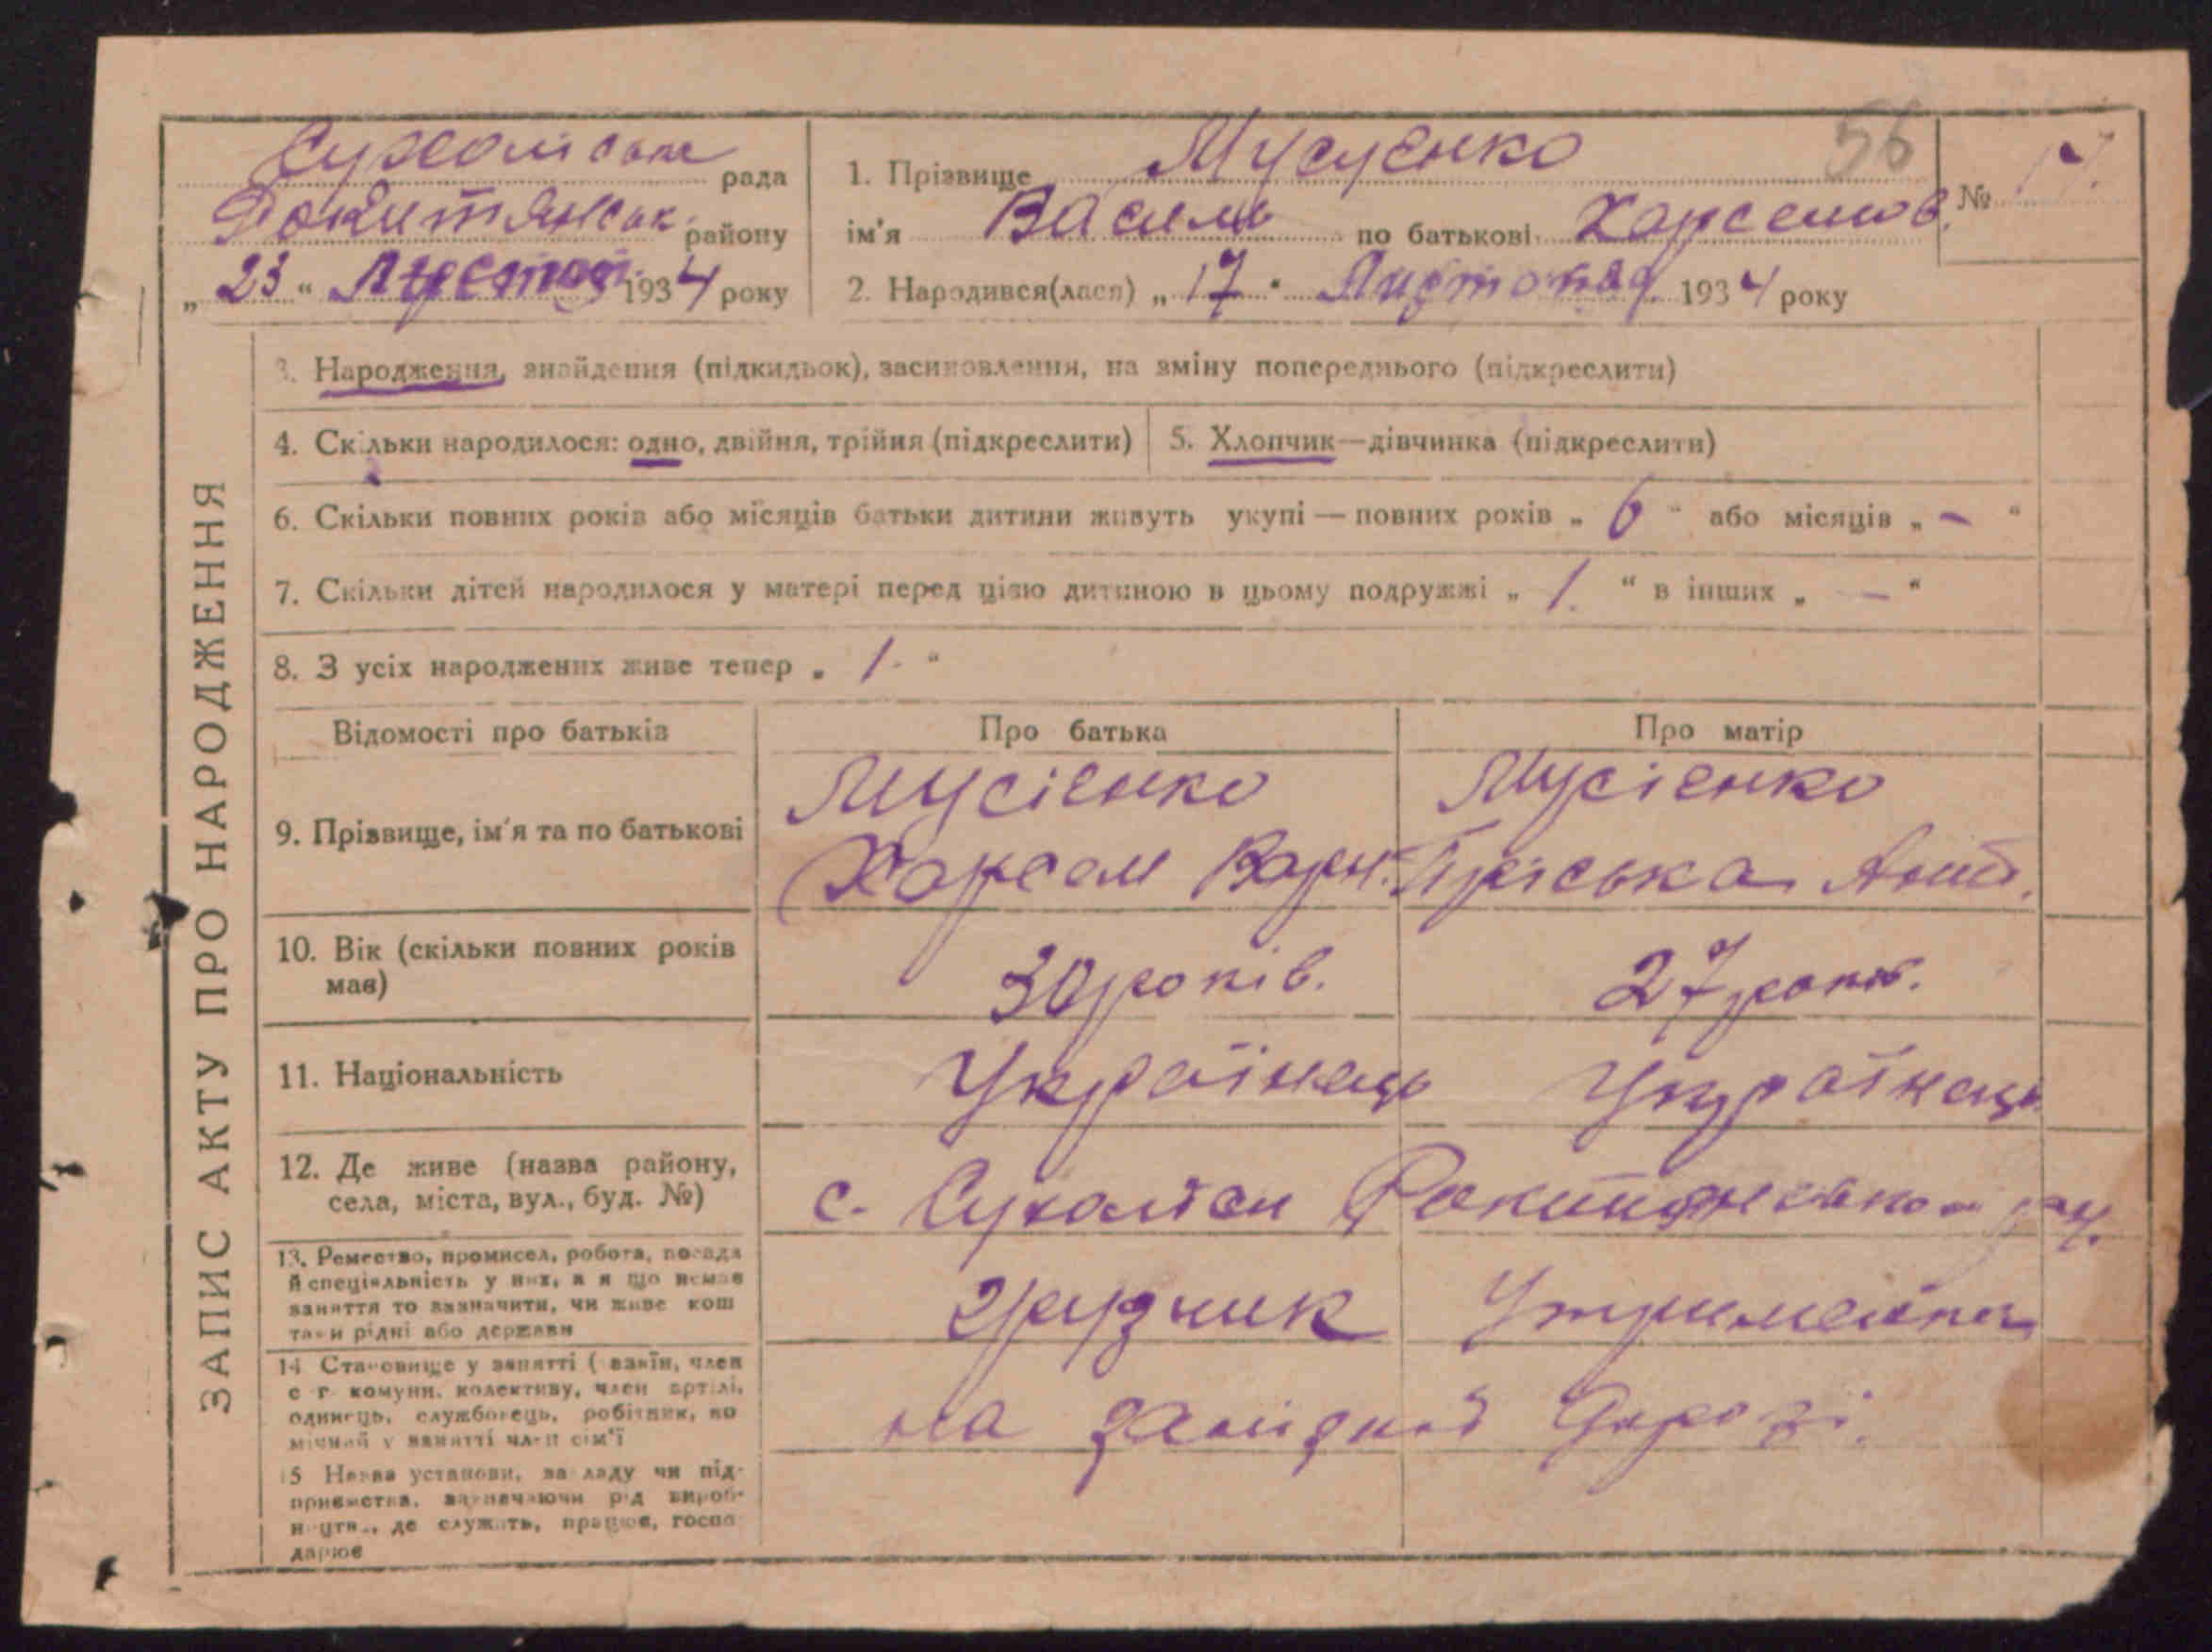 56
Сухоліська рада
Рокитянськ. району
„ 23 “ Листопад. 1934 року
1. Прізвище Мусуенко
ім'я Василь по батькові Харсемов.
№ 17.
2. Народився(лася) „ 17 “ Листопад 1934 року
ЗАПИС АКТУ ПРО НАРОДЖЕННЯ
3. Народження, знайдення (підкидьок), засиновлення, на зміну попереднього (підкреслити)
4. Скільки народилося: одно, двійня, трійня (підкреслити)
5. Хлопчик—дівчинка (підкреслити)
6. Скільки повних років або місяців батьки дитини живуть укупі — повних років „ 6 “ або місяців „ – “
7. Скільки дітей народилося у матері перед цією дитиною в цьому подружжі „ 1. “ в інших „ – “
8. З усіх народжених живе тепер „ 1. “
Відомості про батьків Про батька Про матір
9. Прізвище, ім'я та по батькові
Мусіенко
Харсем Варн.
Мусіенко
Пріська Ант.
10. Вік (скільки повних років
має)
30 років.
27 років.
11. Національність
Українець
Українець
12. Де живе (назва району,
села, міста, вул., буд. №)
с. Сухоліси Рокитянського р-н.
13. Ремество, промисел, робота, посада
й спеціяльність у них, а я що немає
заняття то зазначити, чи живе кош
тами рідні або держави
грузчик
14 Становище у занятті (хазяїн, член
с г комуни, колективу, член артілі,
одинець, службовець, робітник, по
мічний у занятті член сім'ї
на залізній дорозі.
15 Назва установи, закладу чи під-
приємства, зазначаючи рід вироб-
ництва, де служить, працює, госпо
дарює